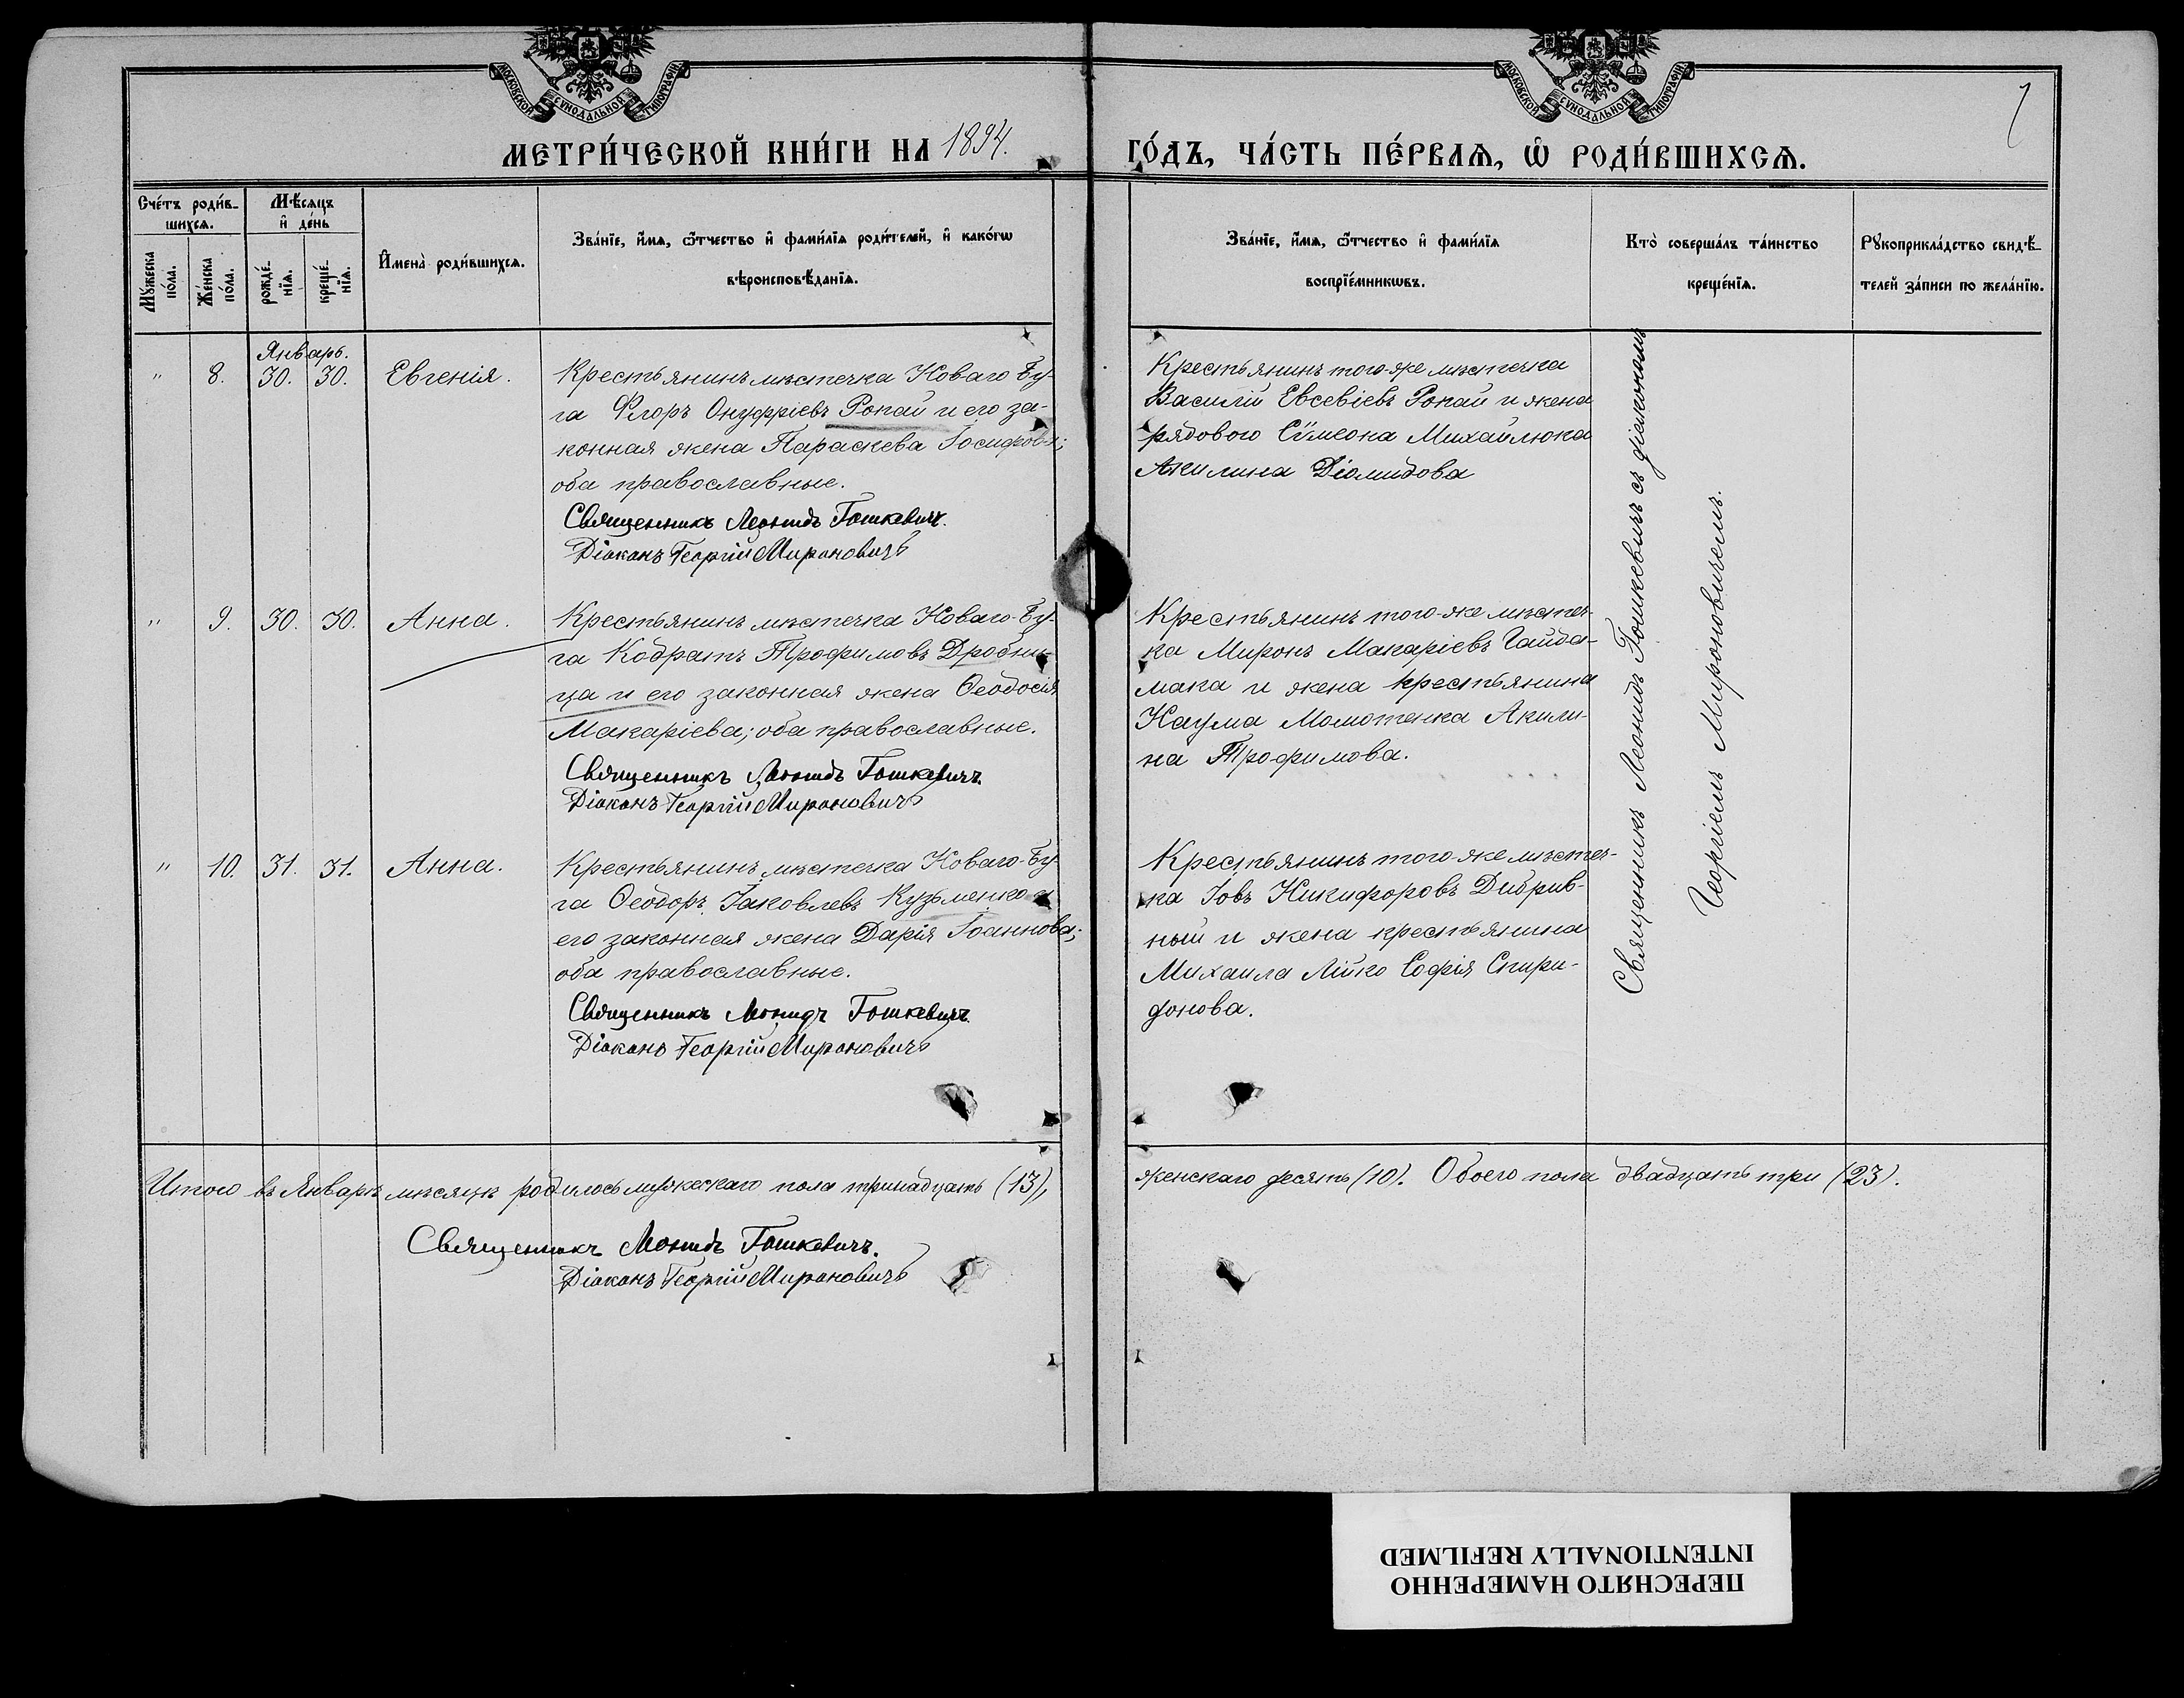 МОСКОВСКОЙ СУНОДАЛЬНОЙ ТИПОГРАФІИ
МОСКОВСКОЙ СУНОДАЛЬНОЙ ТИПОГРАФІИ
МЕТРИ́ЧЕСКОЙ КНИ́ГИ НА 1894.
ГО́ДЪ, ЧА́СТЬ ПЕ́РВАѦ, Ѡ҆ РОДИ́ВШИХСѦ.
Сче́тъ роди́в-
шихсѧ.
Мѣ́сяцъ
и҆ де́нь
Мꙋ́жеска
по́ла.
Же́нска
по́ла.
рожде́-
нїѧ.
креще́-
нїѧ.
И҆мена̀ роди́вшихсѧ.
Зва́нїе, и҆́мѧ, ѻ҆́тчество и҆ фами́лїѧ роди́телей, и҆ како́гѡ
вѣроисповѣ́данїѧ.
Зва́нїе, и҆́мѧ, ѻ҆́тчество и҆ фами́лїѧ
воспрїе́мникѡвъ.
Кто̀ соверша́лъ та́инство
креще́нїѧ.
Рꙋкоприкла́дство свидѣ́-
телей за́писи по жела́нїю.
Январь.
" 8. 30. 30. Евгенія.
Крестьянинъ мѣстечка Новаго Бу-
га Флоръ Онуфріевъ Ропай и его за-
конная жена Параскева Іосифова;
оба православные.
Священникъ Леонидъ Гошкевичъ.
Діаконъ Георгій Мироновичъ
Крестьянинъ того-же мѣстечка
Василій Евсевіевъ Ропай и жена
рядового Сѵмеона Михайлюка
Акилина Діомидова
" 9. 30. 30. Анна.
Крестьянинъ мѣстечка Новаго-Бу-
га Кодратъ Трофимовъ Дробни-
ца и его законная жена Ѳеодосія
Макаріева; оба православные.
Священникъ Леонидъ Гошкевичъ.
Діаконъ Георгій Мироновичъ
Крестьянинъ того-же мѣстеч-
ка Миронъ Макаріевъ Гайда-
мака и жена крестьянина
Наума Момотенка Акили-
на Трофимова.
" 10. 31. 31. Анна.
Крестьянинъ мѣстечка Новаго-Бу-
га Ѳеодоръ Іаковлевъ Кузьменко и
его законная жена Дарія Іоаннова;
оба православные.
Священникъ Леонидъ Гошкевичъ.
Діаконъ Георгій Мироновичъ
Крестьянинъ того-же мѣстеч-
ка Іовъ Никифоровъ Дибрив-
ный и жена крестьянина
Михаила Лійко Софія Спири-
донова.
Священникъ Леонидъ Гошкевичъ съ діакономъ
Георгіемъ Мироновичемъ.
Итого въ Январѣ мѣсяцѣ родилось мужескаго пола тринадцать (13),
женскаго десять (10). Обоего пола двадцать три (23).
Священникъ Леонидъ Гошкевичъ.
Діаконъ Георгій Мироновичъ
ПЕРЕСНЯТО НАМЕРЕННО
INTENTIONALLY REFILMED